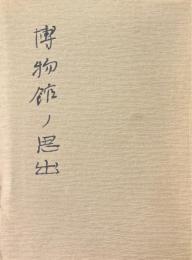 博物館ノ思出